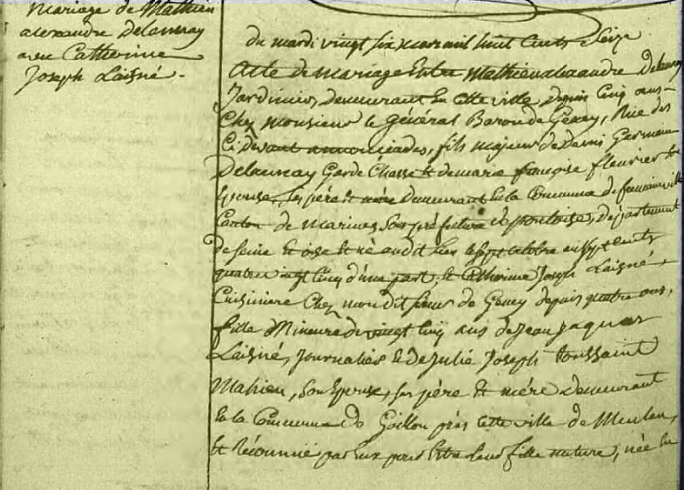 Mariage de Mathieu
alexandre delaunay
avec Catherine
Joseph Laisné.
du mardi vingt six mars mil huit cents seize
Acte de mariage Entre Mathieu alexandre delaunay
Jardinier, demeurant En cette ville depuis Cinq ans
Chez monsieur le Général Baron de Gency, Rue des
Ci devant annonciades, fils majeur de denis Germain
Delaunay Garde Chasse & de marie françoise fleurier
Epouse, ses père & mère demeurant En la Commune de
Canton de Marines, Sous préfecture de pontoise, département
de seine & oise & né audit lieu le sept octobre an sept cents
quatre vingt cinq d'une part, & Catherine Joseph Laisné
Cuisiniere Chez mon dit sieur de Gency depuis quatre ans,
fille Mineure de vingt cinq ans de Jean Jaques
Laisné, Journalier & de Julie Joseph toussaint
Mahieu, son Epouse, ses père & mère demeurant
En la Commune de Gaillon près cette ville de Meulan,
& Reconnue par Eux pour être leur fille nature, née En